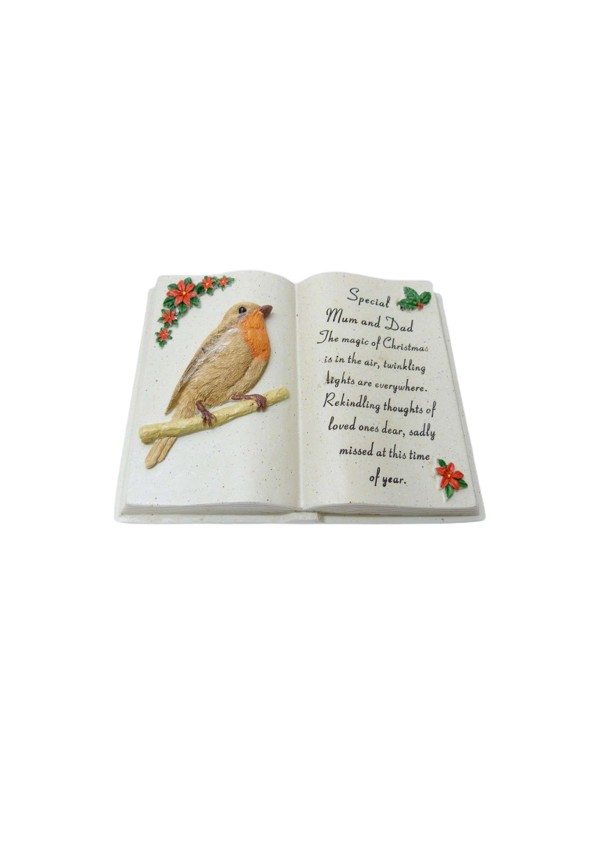 Special
Mum and Dad
The magic of Christmas
is in the air, twinkling
lights are everywhere.
Rekindling thoughts of
loved ones dear, sadly
missed at this time
of year.